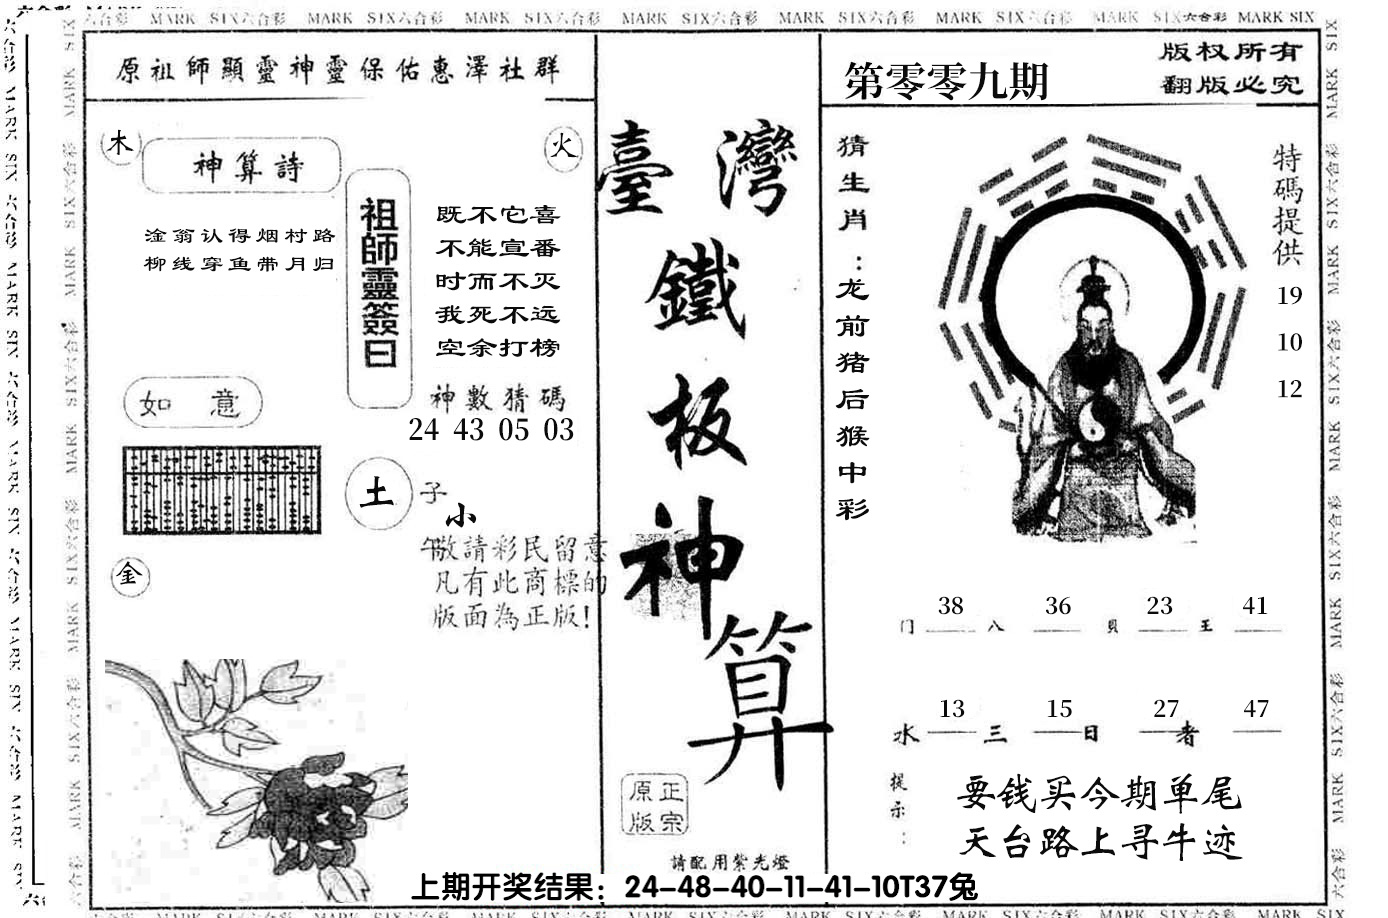 MARK SIX六合彩 MARK SIX六合彩 MARK SIX六合彩 MARK SIX六合彩 MARK SIX六合彩 MARK SIX六合彩 MARK SIX六合彩 MARK SIX
原祖師顯靈神靈保佑惠澤社群
木
火
神算詩
淦翁认得烟村路
柳线穿鱼带月归
祖師靈簽曰
既不它喜
不能宣番
时而不灭
我死不远
空余打榜
神數猜碼
24 43 05 03
如意
土
子
小
午
金
敬請彩民留意
凡有此商標的
版面為正版!
臺灣
鐵
板
神
算
正宗
原版
請配用紫光燈
第零零九期
版权所有
翻版必究
猜生肖:龙前猪后猴中彩
特碼提供
19
10
12
38 36 23 41
门 八 貝 王
13 15 27 47
水 三 日 者
提示:
要钱买今期单尾
天台路上寻牛迹
上期开奖结果：24-48-40-11-41-10T37兔